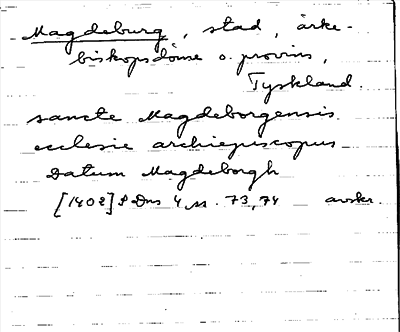 Magdeburg, stad, ärke-
biskopsdöme o. provins,
Tyskland.
sancte Magdeborgensis
ecclesie archiepiscopus
Datum Magdeborgh
[1402] SDns 4 . 73, 74 avskr.